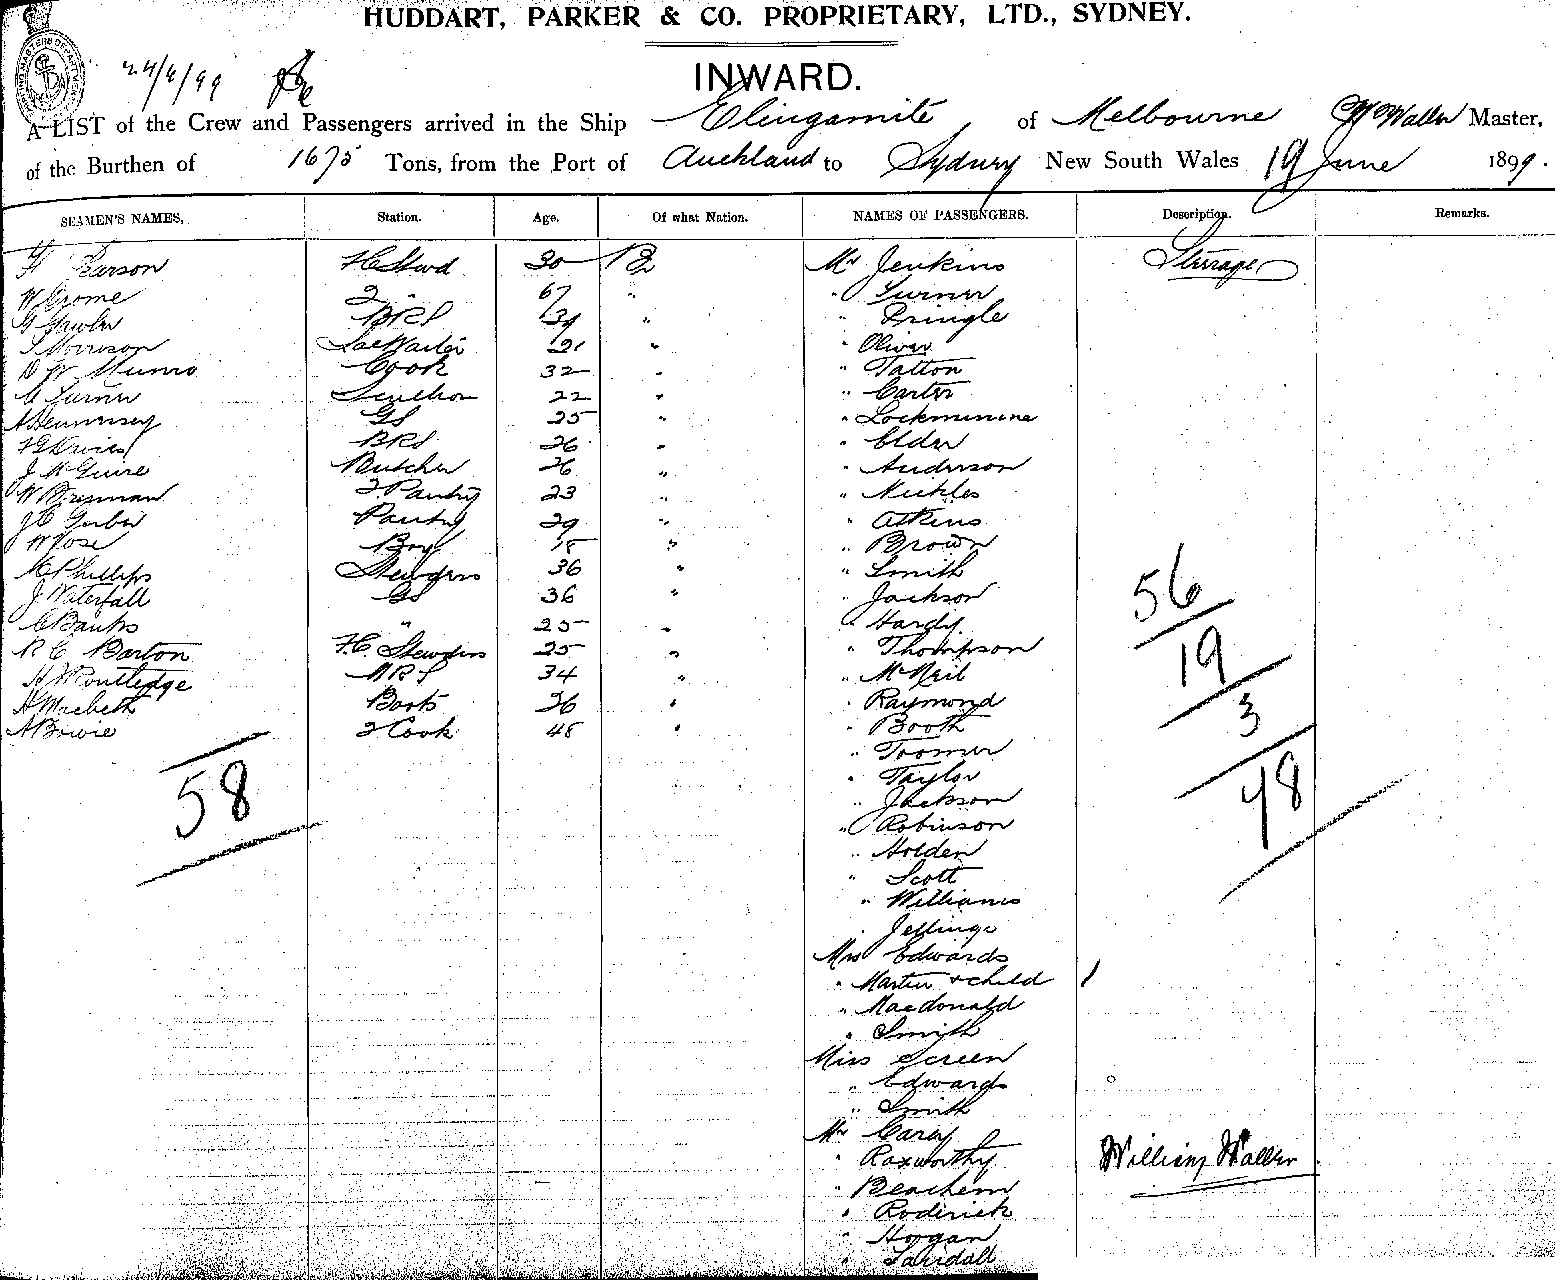 HUDDART, PARKER & CO. PROPRIETARY, LTD., SYDNEY.
24/6/99
INWARD.
A LIST of the Crew and Passengers arrived in the Ship Elingamite of Melbourne Wm Waller Master,
of the Burthen of 1675 Tons, from the Port of Auckland to Sydney New South Wales 19 June 1899.
SEAMEN'S NAMES, Station. Age. Of what Nation. NAMES OF PASSENGERS. Description. Remarks.
30 Br Mr Jenkins Steerage
W Crome 2 " 67 " " Turner
BRS 39 " " Pringle
S Morrison 21 " " Oliver
D W Munro Cook 32 " " Tatton
C Turner 22 " " Carter
A Hennessey GS 25 " "
BRS 26 " " Elder
J McGuire Butcher 26 " " Anderson
W Brennan 2 Pantry 23 " " Nickles
J C Pantry 29 " " Atkins
W Rose Boy 15 " " Brown
M Phillips Stewdess 36 " " Smith
J Waterfall GS 36 " " Jackson
C Banks " 25 " " Hardy
R C Barton F.C. Stewdess 25 " " Thompson
H Routledge 34 " " McNeil
A Macbeth Boots 26 " " Raymond
A Bowie 2 Cook 48 " " Booth
" Toomer
" Taylor
" Jackson
" Robinson
" Holden
" Scott
" Williams
"
Mrs Edwards
" Martin & child 1
" Macdonald
" Smith
Miss Screen
" Edwards
" Smith
Mr Carey
" Roxworthy
" Beachem
" Roderick
" Horgan
"
58
56
19
3
48
William Waller